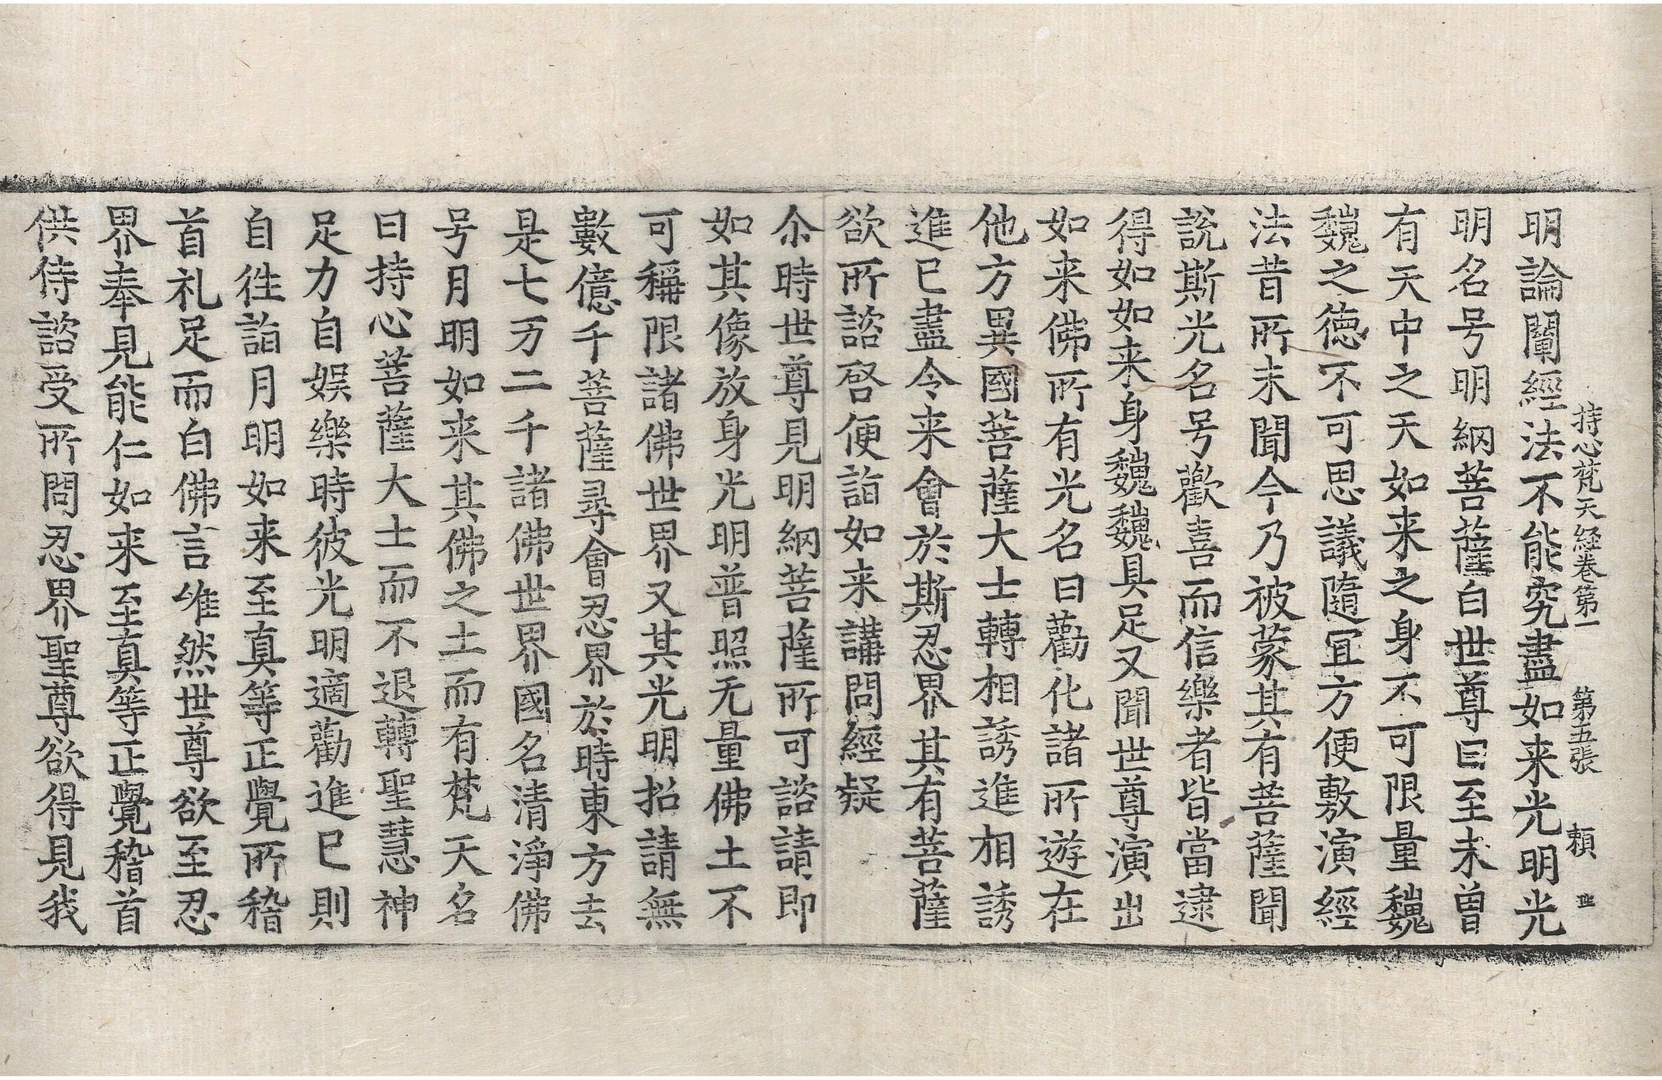 持心梵天経卷第一 第五張 頼
明論闡經法不能究盡如来光明光
明名号明綱菩薩白世尊曰至未曽
有天中之天如来之身不可限量巍
巍之徳不可思議隨冝方便敷演經
法昔所未聞今乃被蒙其有菩薩聞
說斯光名号歡喜而信樂者皆當逮
得如如来身巍巍具足又聞世尊演出
如来佛所有光名曰勸化諸所遊在
他方異國菩薩大士轉相誘進相誘
進已盡令来會於斯忍界其有菩薩
欲所諮啓便詣如来講問經疑
尒時世尊見明綱菩薩所可諮請即
如其像放身光明普照无量佛土不
可稱限諸佛世界又其光明招請無
數億千菩薩尋會忍界於時東方去
是七万二千諸佛世界國名清淨佛
号月明如来其佛之土而有梵天名
曰持心菩薩大士而不退轉聖慧神
足力自娯樂時彼光明適勸進已則
自徃詣月明如来至真等正覺所稽
首礼足而白佛言唯然世尊欲至忍
界奉見能仁如来至真等正覺稽首
供侍諮受所問忍界聖尊欲得見我